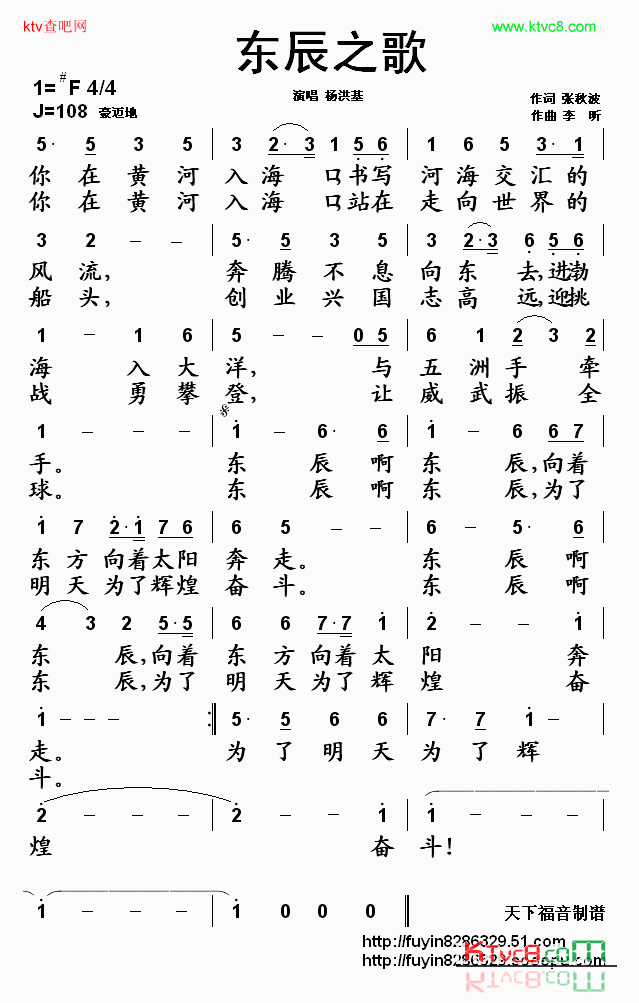 ktv查吧网
www.ktvc8.com
东辰之歌
1=#F 4/4
J=108 豪迈地
演唱 杨洪基
作词 张秋波
作曲 李 昕
5· 5 3 5 | 3 2·3 1 5 6 | 1 6 5 3·1
你在黄河 入海口书写 河海交汇的
你在黄河 入海口站在 走向世界的
3 2 - - | 5· 5 3 5 | 3 2·3 6 5 6
风流, 奔腾不息 向东去,进渤
船头, 创业兴国 志高远,迎挑
1 - 1 6 | 5 - - 0 5 | 6 1 2 3 2
海入大 洋, 与 五洲手牵
战勇攀 登, 让 威武振全
1 - - - | 1 - 6· 6 | 1 - 6 6 7
手。 东辰啊 东辰,向着
球。 东辰啊 东辰,为了
1 7 2·1 7 6 | 6 5 - - | 6 - 5· 6
东方向着太阳 奔走。 东辰啊
明天为了辉煌 奋斗。 东辰啊
4 3 2 5·5 | 6 6 7·7 1 | 2 - - 1
东辰,向着 东方向着太 阳 奔
东辰,为了 明天为了辉 煌 奋
1 - - - :| 5· 5 6 6 | 7· 7 1
走。 为了明天 为了辉
斗。
2 - - - | 2 - - 1 | 1 - - -
煌 奋 斗!
1 - - - | 1 0 0 0 ||
天下福音制谱
http://fuyin8286329.51.com
KTvc8.com